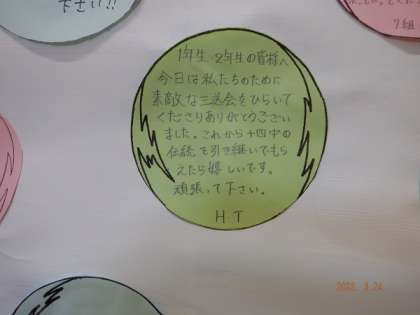 下さい!!
7組
1年生・2年生の皆様へ
今日は私たちのために
素敵な三送会をひらいて
くださりありがとうござい
ました。これから十四中の
伝統を引き継いでもら
えたら嬉しいです。
頑張って下さい。
H.T